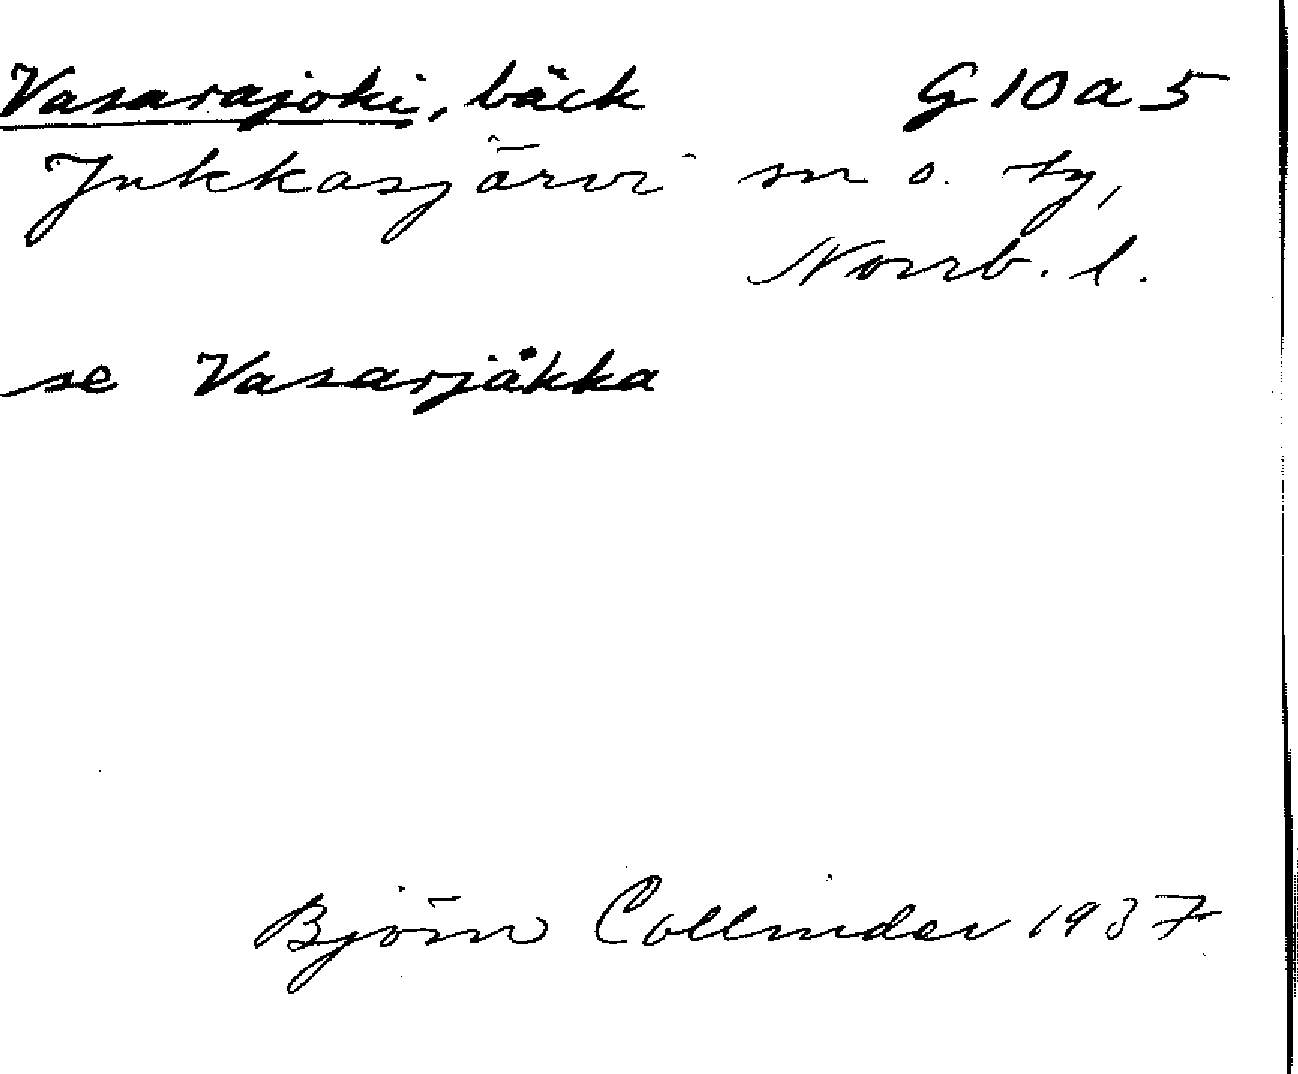 Vasarajoki, bäck G 10 a 5
Jukkasjärvi sn o. tg,
Norrb. l.
se Vasarjåkka
Björn Collinder 1937